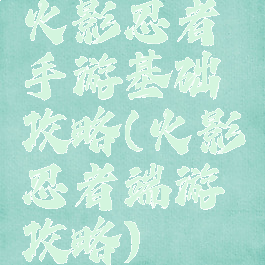 火影忍者
手游基础
攻略(火影
忍者端游
攻略)